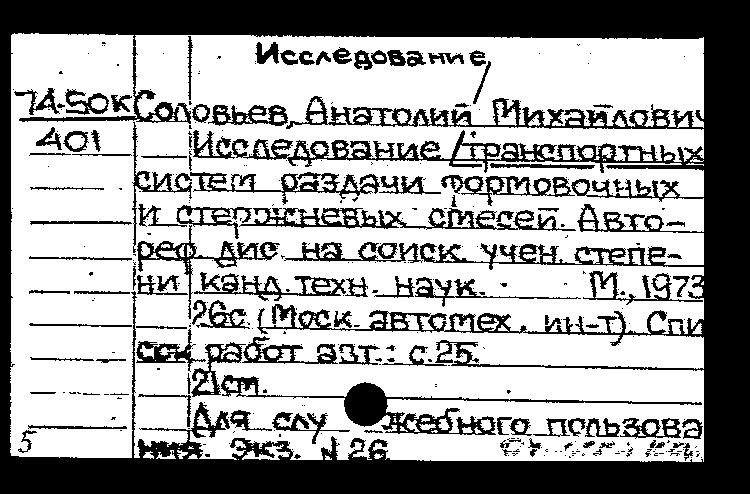 Исследование
74-50к Соловьев, Анатолий Михайлович
401 Исследование /транспортных
систем раздачи формовочных
и стержневых смесей. Авто-
реф. дис. на соиск. учен. степе-
ни канд. техн. наук. М., 1973
26с (Моск. автомех. ин-т). Спи
сок работ авт.: с. 25.
21см.
Для служебного пользова
ния. Экз. N 26
5